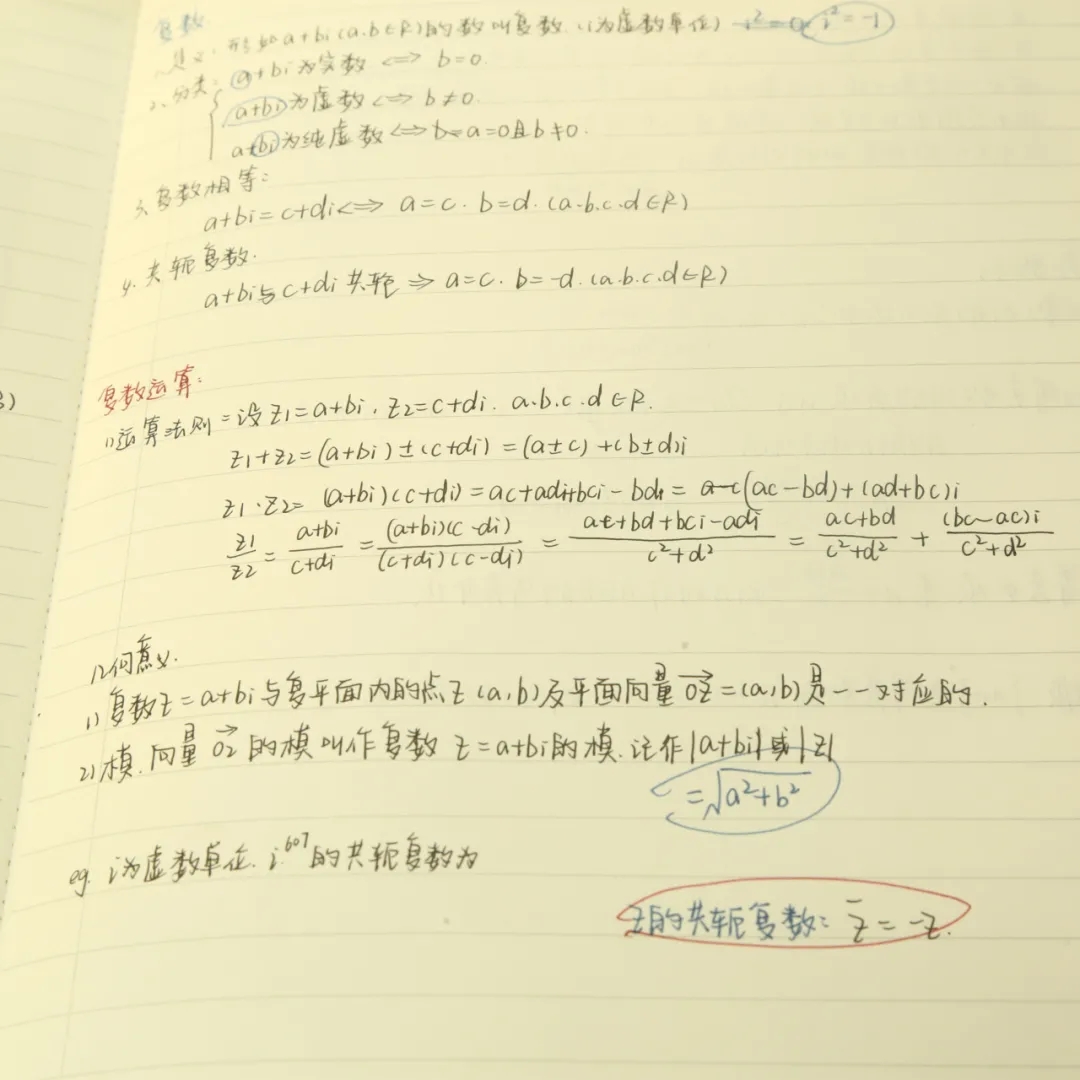 复数
1、定义：形如a+bi(a.b∈R)的数叫复数.(i为虚数单位) i²=0 i²=-1
2、分类：a+bi为实数 <=> b=0.
a+bi为虚数 <=> b≠0.
a+bi为纯虚数 <=> b= a=0且b≠0.
3、复数相等：
a+bi=c+di <=> a=c. b=d. (a.b.c.d∈R)
4. 共轭复数.
a+bi与c+di共轭 => a=c. b=-d. (a.b.c.d∈R)
复数运算：
1)运算法则=设z1=a+bi, z2=c+di. a.b.c.d∈R.
z1+z2=(a+bi)±(c+di)=(a±c)+(b±d)i
z1·z2=(a+bi)(c+di)=ac+adi+bci-bd=a-c(ac-bd)+(ad+bc)i
z1/z2=(a+bi)/(c+di)=(a+bi)(c-di)/(c+di)(c-di)=(ac+bd+bci-adi)/(c²+d²)=(ac+bd)/(c²+d²)+(bc-ac)i/(c²+d²)
几何意义.
1) 复数z=a+bi与复平面内的点Z(a,b)及平面向量OZ=(a,b)是一一对应的.
2)模.向量OZ的模叫作复数z=a+bi的模.记作|a+bi|或|z|
=√(a²+b²)
eg. i为虚数单位. i⁶⁰⁷的共轭复数为
z的共轭复数：z̄=-z.